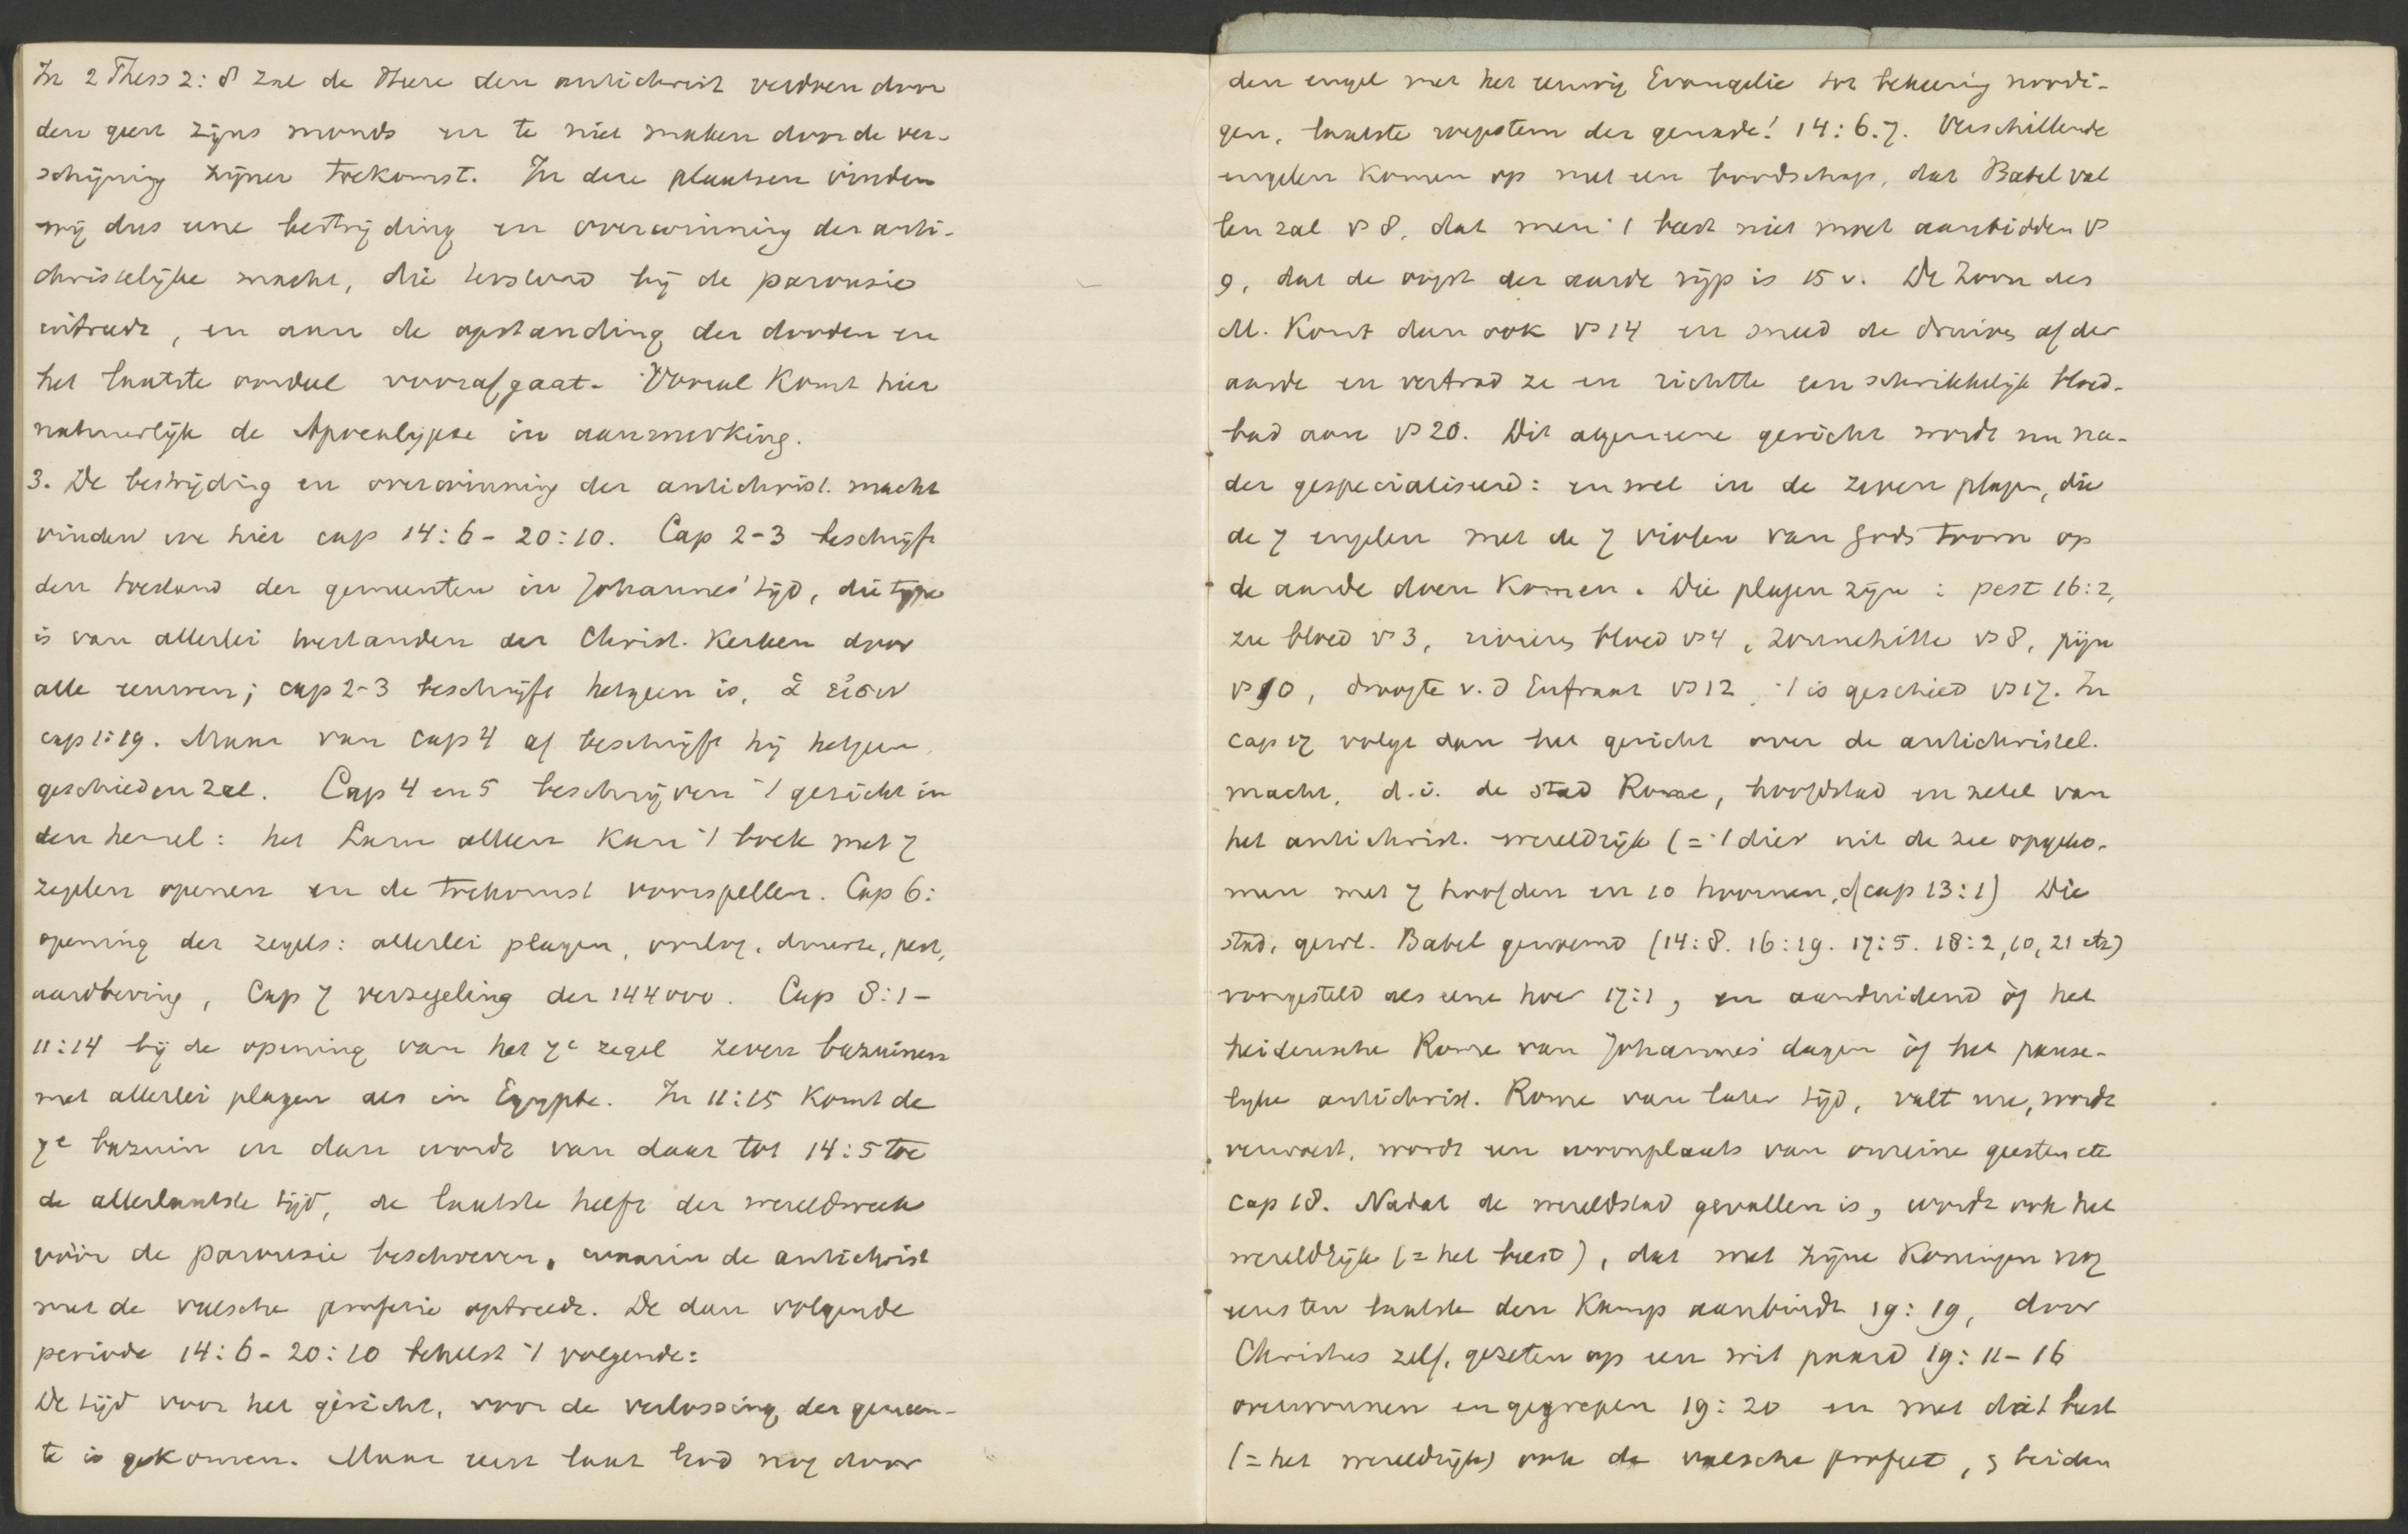 In 2 Thess 2:8 zal de Heere den antichrist verdoen door
den geest zijns monds en te niet maken door de ver-
schijning zijner toekomst. In deze plaatsen vinden
wij dus eene bestrijding en overwinning der anti-
christelijke macht, die terstond bij de parousie
intreedt, en aan de opstanding der dooden en
het laatste oordeel voorafgaat. Vooral komt hier
natuurlijk de Apocalypse in aanmerking.
3. De bestrijding en overwinning der antichrist. macht
vinden we hier cap 14:6-20:10. Cap 2-3 beschrijft
den toestand der gemeenten in Johannes' tijd, die type
is van allerlei toestanden der Christ. Kerken door
alle eeuwen; cap 2-3 beschrijft hetgeen is, ἅ εἰσιν
cap 1:19. Maar van cap 4 af beschrijft hij hetgeen
geschieden zal. Cap 4 en 5 beschrijven 't gericht in
den hemel: het Lam alleen kan 't boek met 7
zegelen openen en de toekomst voorspellen. Cap 6:
opening der zegels: allerlei plagen, oorlog, duurte, pest,
aardbeving, Cap 7 verzegeling der 144000. Cap 8:1-
11:14 bij de opening van het 7e zegel zeven bazuinen
met allerlei plagen als in Egypte. In 11:15 komt de
7e bazuin en dan wordt van daar tot 14:5 toe
de allerlaatste tijd, de laatste helft der wereldweek
vóór de parousie beschreven, waarin de antichrist
met de valsche profetie optreedt. De dan volgende
periode 14:6-20:10 behelst 't volgende:
De tijd voor het gericht, voor de verlossing der gemeen-
te is gekomen. Maar eerst laat God nog door
den engel met het eeuwig Evangelie tot bekeering noodi-
gen, laatste roepstem der genade! 14:6.7. Verschillende
engelen komen op met een boodschap, dat Babel val
len zal vs 8, dat men 't beest niet moet aanbidden vs
9, dat de oogst der aarde rijp is 15 v. De Zoon des
M. komt dan ook vs 14 en sneed de druiven af der
aarde en vertrad ze en richtte een schrikkelijk bloed-
bad aan vs 20. Dit algemeene gericht wordt nu na-
der gespecialiseerd: en wel in de zeven plagen, die
de 7 engelen met de 7 violen van Gods toorn op
de aarde doen komen. Die plagen zijn: pest 16:2,
zee bloed vs 3, rivieren bloed vs 4, zonnehitte vs 8, pijn
vs 10, droogte v. d Eufraat vs 12, 't is geschied vs 17. In
cap 17 volgt dan het gericht over de antichristel.
macht, d.i. de stad Rome, hoofdstad en zetel van
het antichrist. wereldrijk (= 't dier uit de zee opgeko-
men met 7 hoofden en 10 hoornen, cf cap 13:1) Die
stad, geest. Babel genoemd (14:8. 16:19. 17:5. 18:2,10,21 etc)
voorgesteld als eene hoer 17:1, en aanduidend òf het
heidensche Rome van Johannes' dagen òf het pause-
lijke antichrist. Rome van later tijd, valt nu, wordt
verwoest, wordt een woonplaats van onreine geesten etc
cap 18. Nadat de wereldstad gevallen is, wordt ook het
wereldrijk (= het beest), dat met zijne koningen nog
eens ten laatste den kamp aanbindt 19:19, door
Christus zelf, gezeten op een wit paard 19:11-16
overwonnen en gegrepen 19:20 en met dat beest
(= het wereldrijk) ook de valsche profeet, beiden